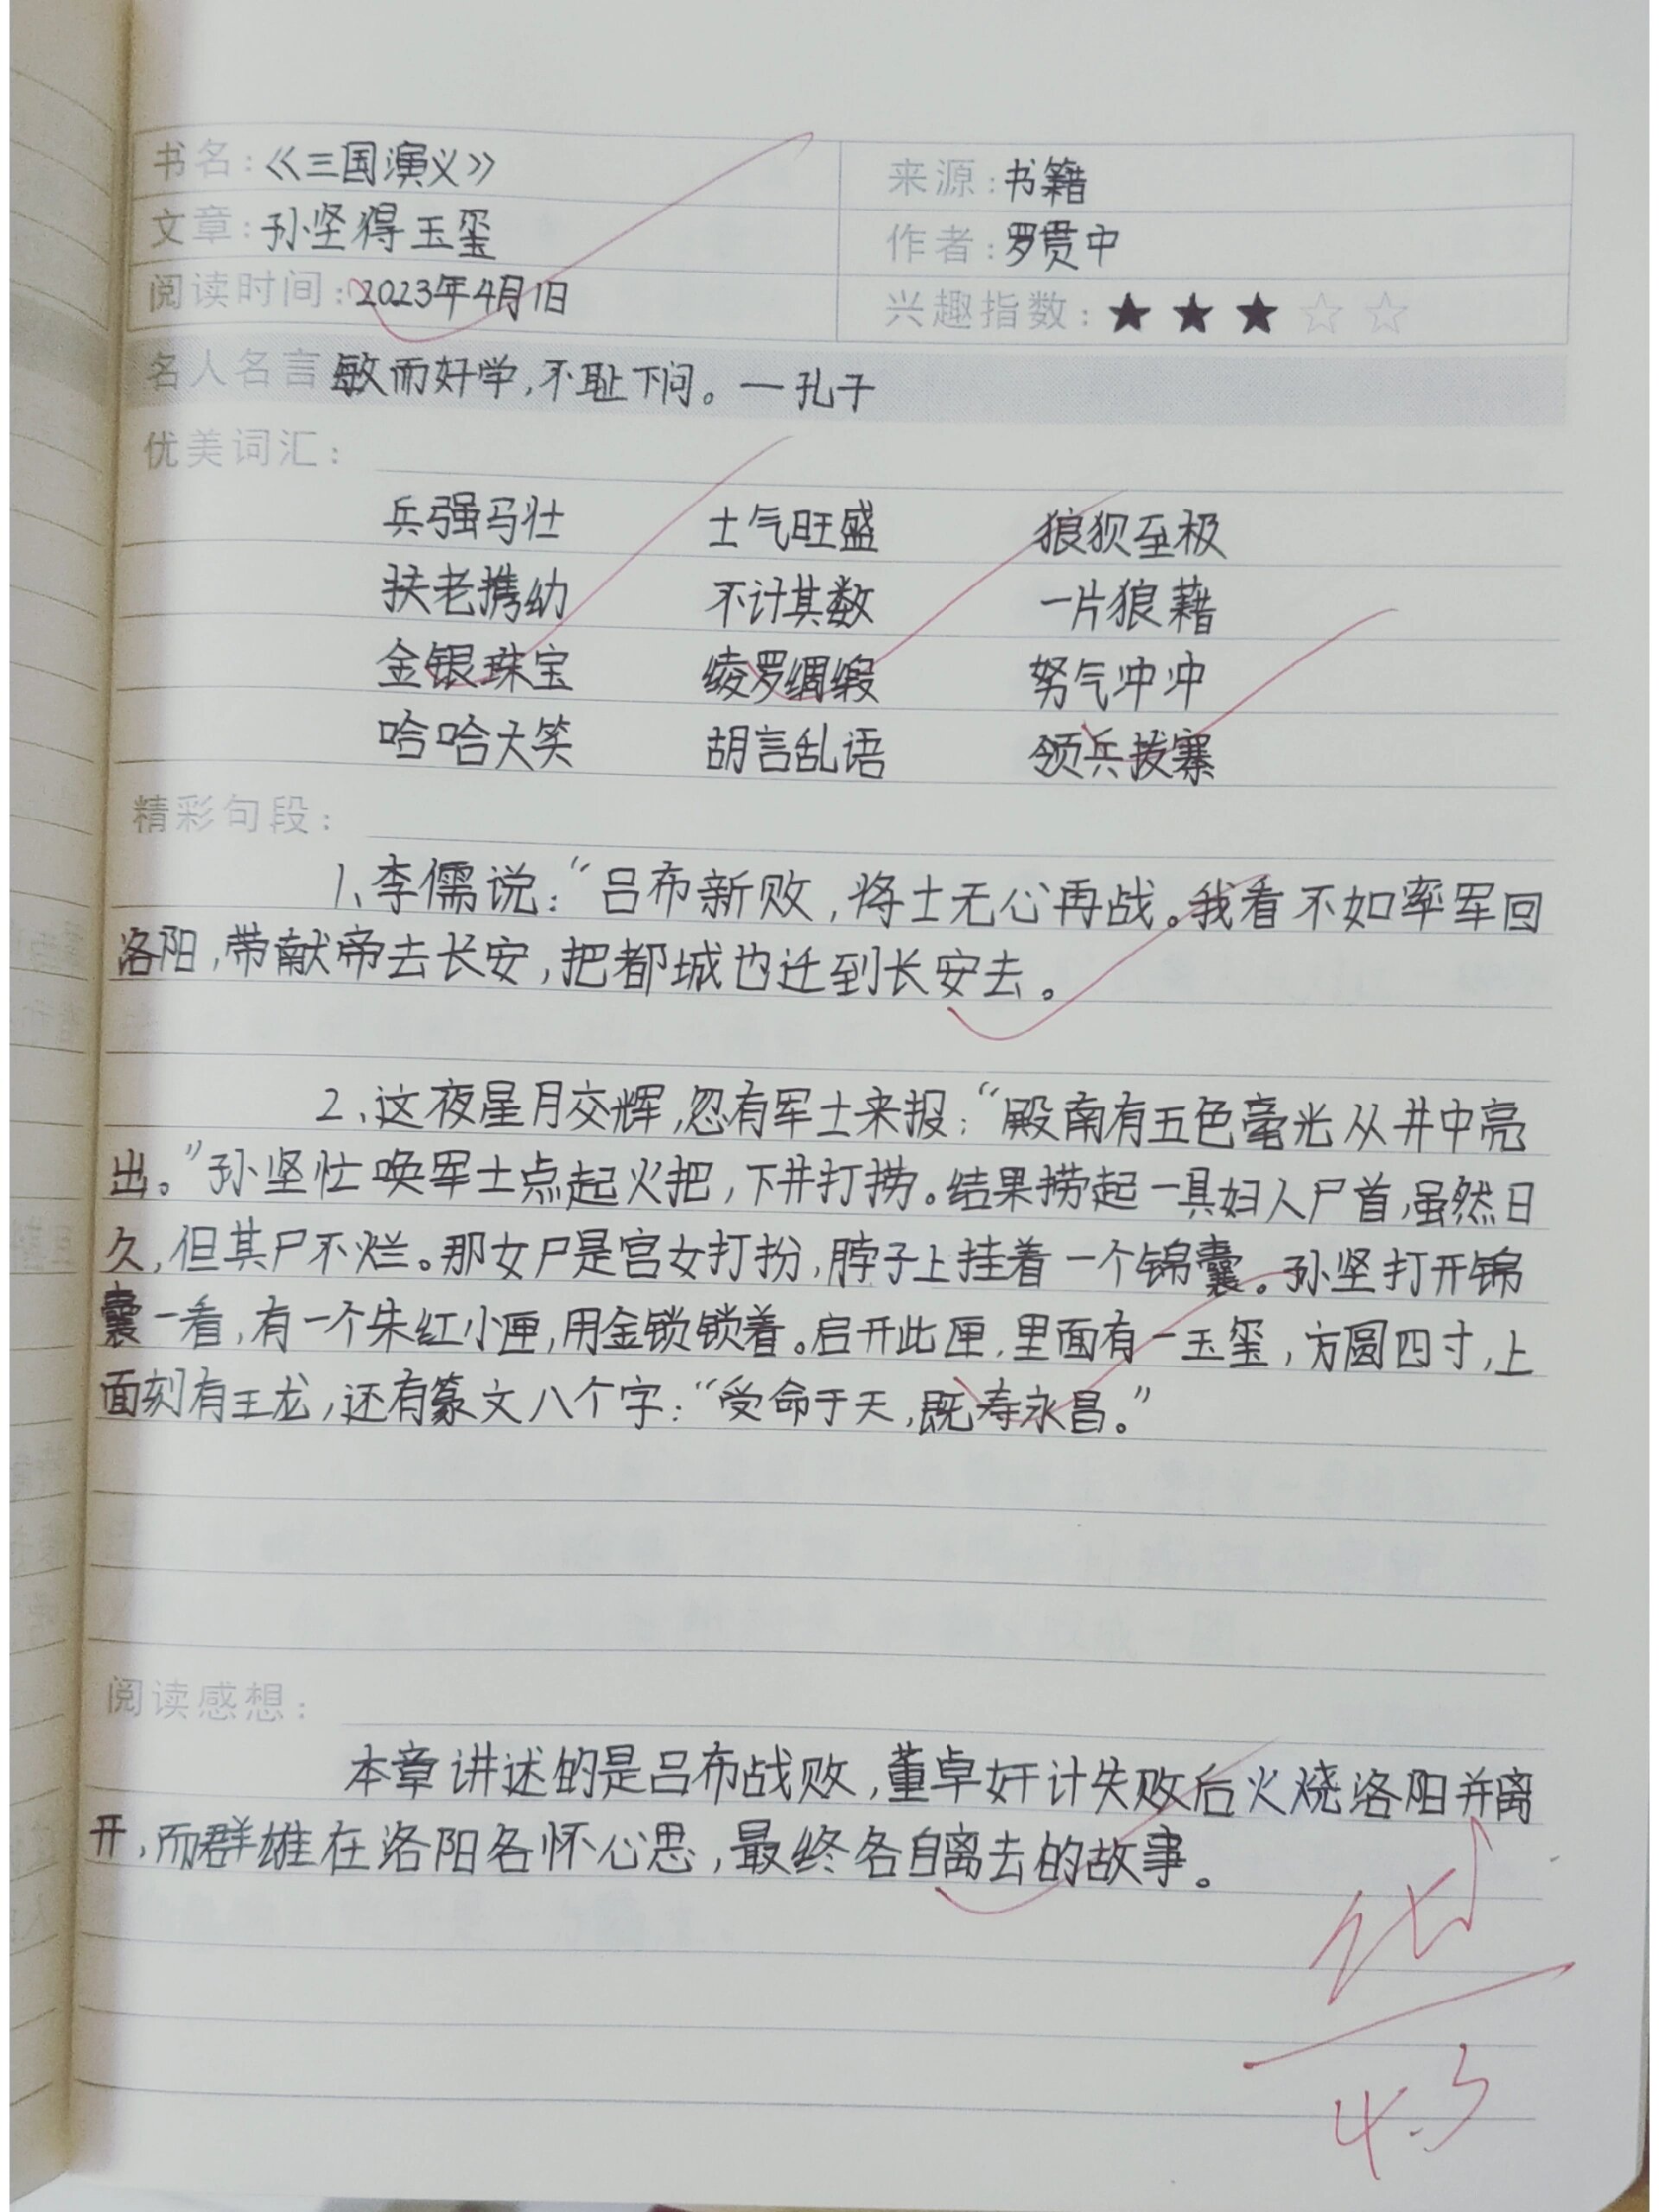 书名：《三国演义》 来源：书籍
文章：孙坚得玉玺 作者：罗贯中
阅读时间：2023年4月1日 兴趣指数：★★★☆☆
名人名言 敏而好学，不耻下问。—孔子
优美词汇：
兵强马壮 士气旺盛 狼狈至极
扶老携幼 不计其数 一片狼藉
金银珠宝 绫罗绸缎 努气冲冲
哈哈大笑 胡言乱语 领兵拔寨
精彩句段：
1、李儒说：“吕布新败，将士无心再战。我看不如率军回
洛阳，带献帝去长安，把都城也迁到长安去。
2、这夜星月交辉，忽有军士来报：“殿南有五色毫光从井中亮
出。”孙坚忙唤军士点起火把，下井打捞。结果捞起一具妇人尸首，虽然日
久，但其尸不烂。那女尸是宫女打扮，脖子上挂着一个锦囊。孙坚打开锦
囊一看，有一个朱红小匣，用金锁锁着。启开此匣，里面有一玉玺，方圆四寸，上
面刻有王龙，还有篆文八个字：“受命于天，既寿永昌。”
阅读感想：
本章讲述的是吕布战败，董卓奸计失败后火烧洛阳并离
开，而群雄在洛阳各怀心思，最终各自离去的故事。
4.3